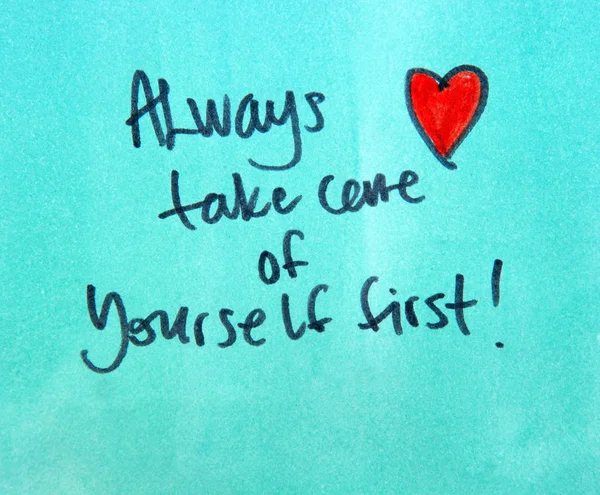 Always
take care
of
yourself first!